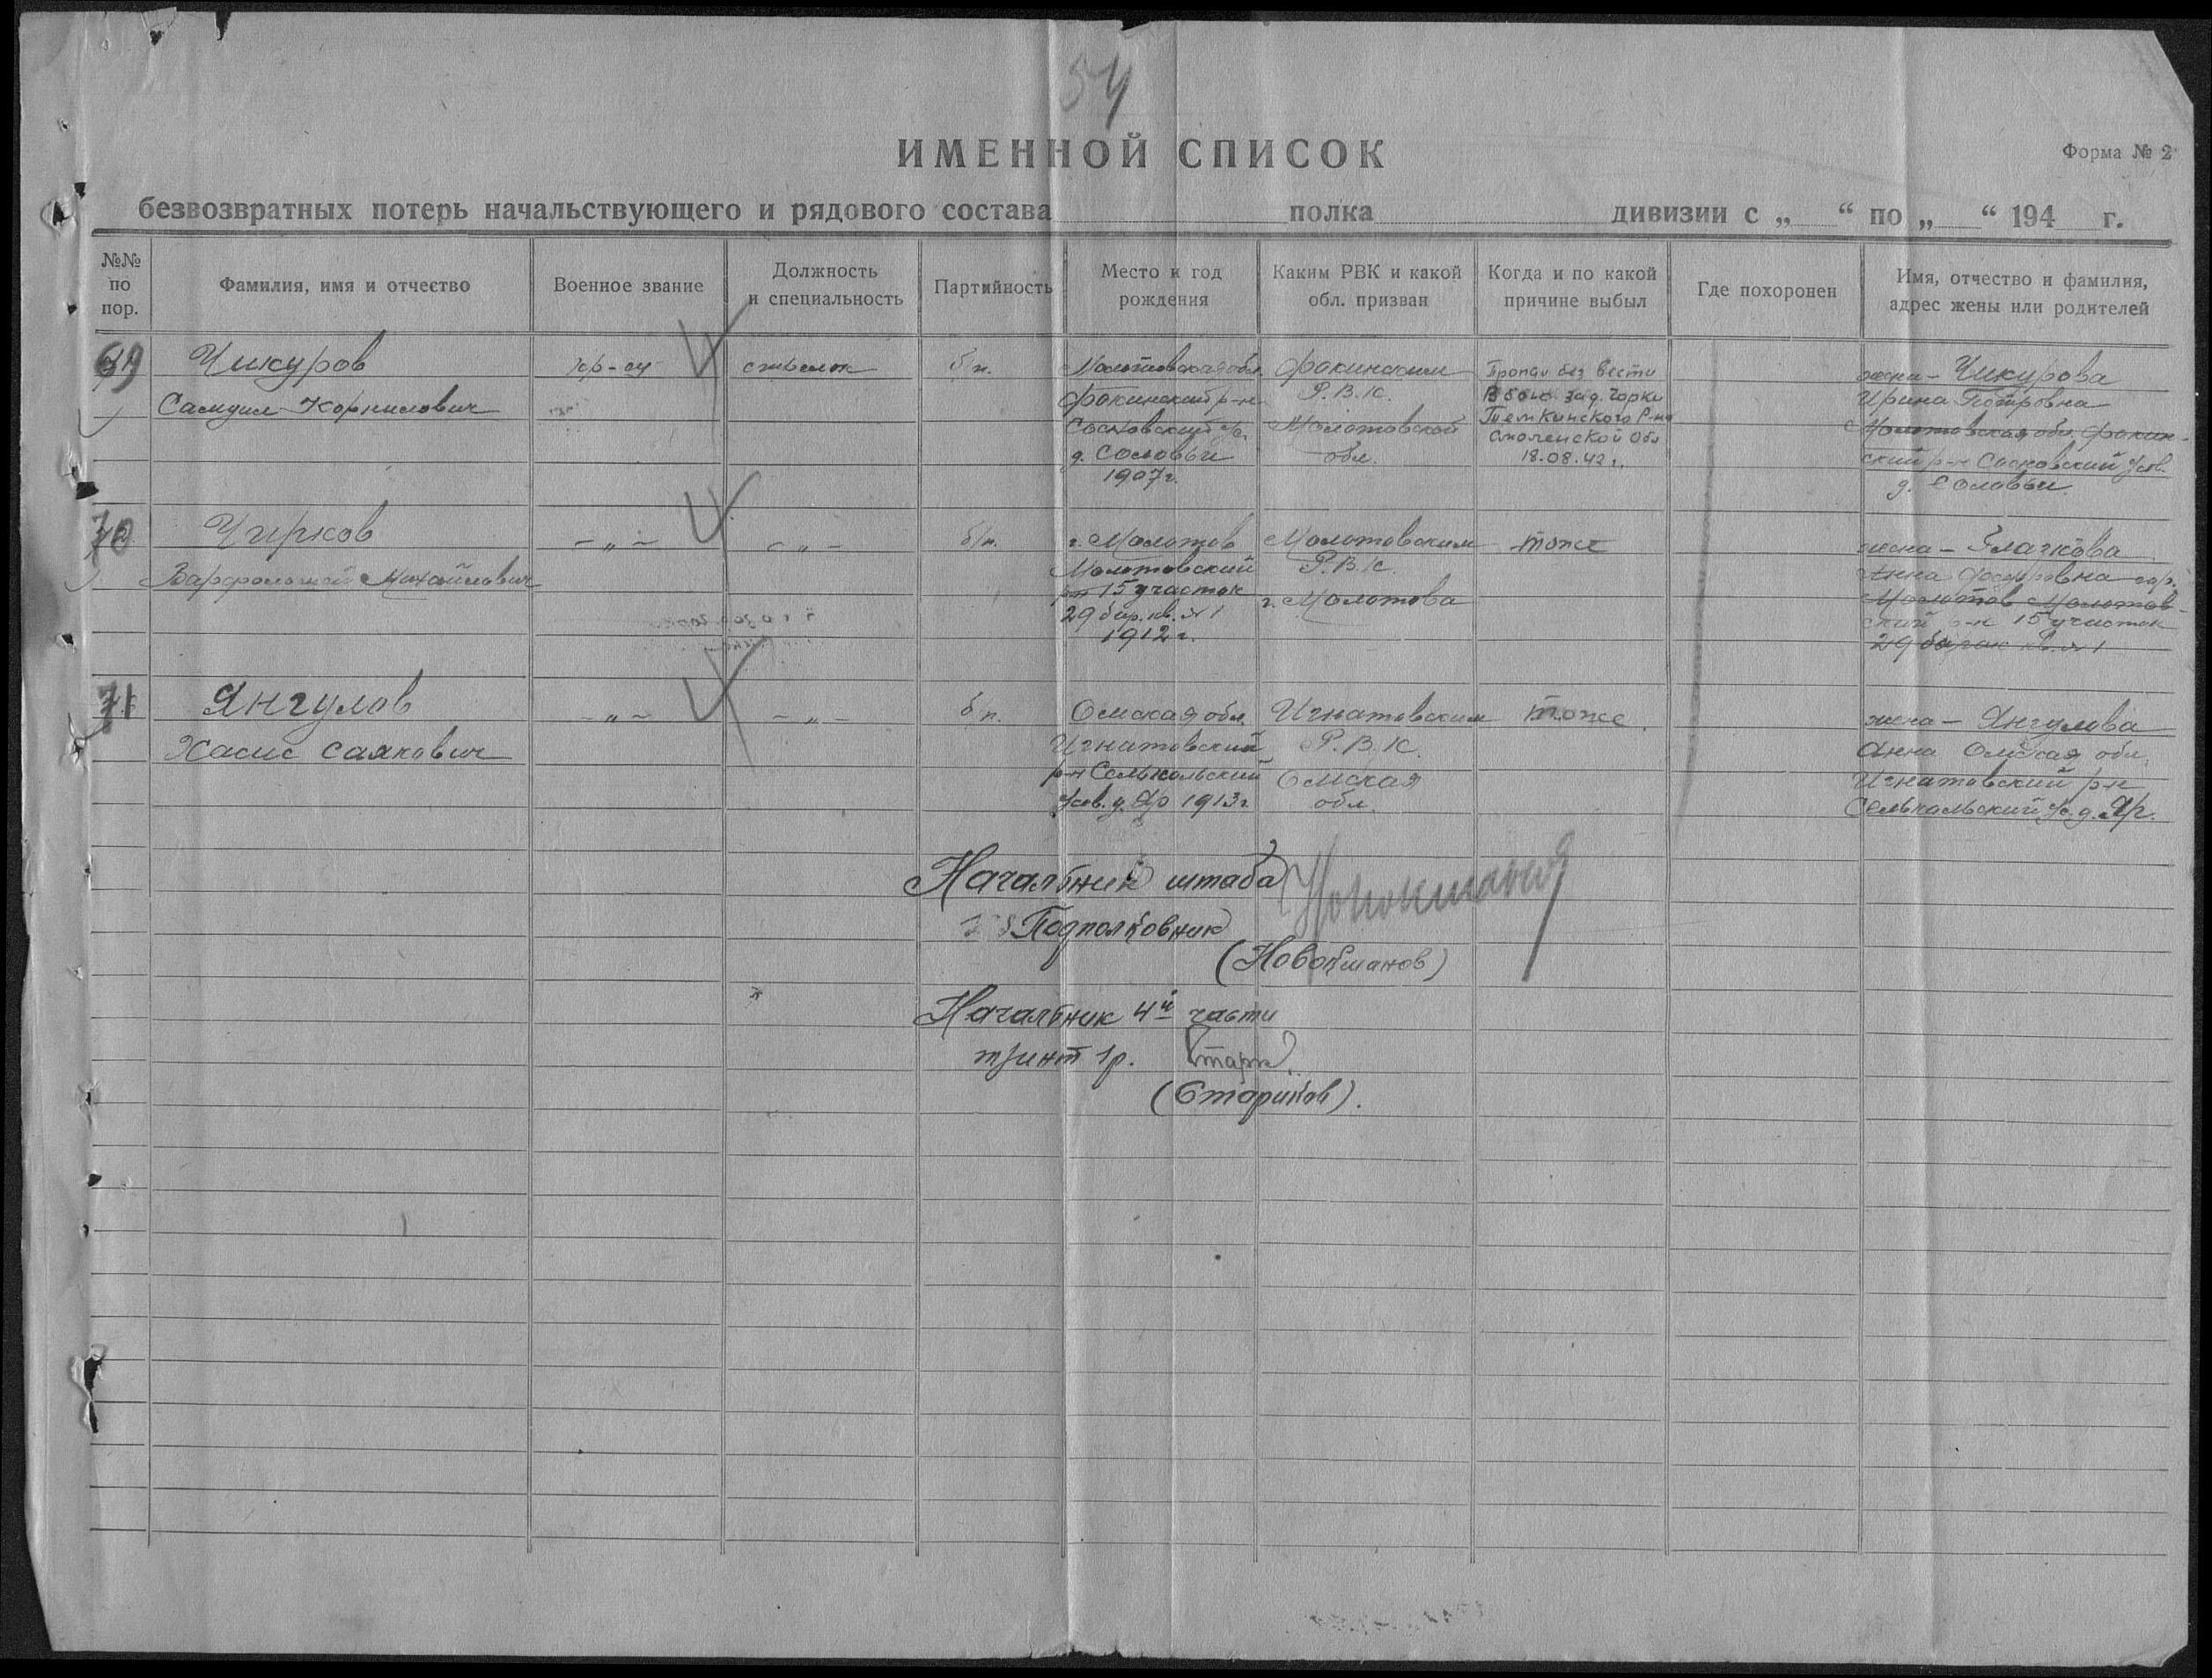 54
ИМЕННОЙ СПИСОК
Форма № 2
безвозвратных потерь начальствующего и рядового состава полка дивизии с „ “ по „ “ 194 г.
№№ по пор.
Фамилия, имя и отчество
Военное звание
Должность и специальность
Партийность
Место и год рождения
Каким РВК и какой обл. призван
Когда и по какой причине выбыл
Где похоронен
Имя, отчество и фамилия, адрес жены или родителей
69
Чикуров
Самуил Корнилович
кр-ец
стрелок
б/п.
Молотовская обл.
Фокинский р-н
Сосновский с/с.
д. Соловьи
1907 г.
Фокинским
Р.В.К.
Молотовской
обл.
Пропал без вести
В бою за д. Горки
Темкинского Р-на
Смоленской Обл
18.08.42 г.
жена - Чикурова
Ирина Петровна
Молотовская обл. Фокин-
ский р-н Сосновский с/сов.
д. Соловьи
70
Чирков
Варфоломей Михайлович
- „ -
- „ -
б/п.
г. Молотов
Молотовский
р-н 15 участок
29 бар. кв. № 1
1912 г.
Молотовским
Р.В.К.
г. Молотова
тоже
жена -
Анна гор.
Молотов Молотов-
ский р-н 15 участок
29 барак кв. № 1
71
Янгулов
Хасис
- „ -
- „ -
б/п.
Омская обл.
Игнатовский
р-н
с/сов. д. Яр 1913 г
Игнатовским
Р.В.К.
Омская
обл.
тоже
жена - Янгулова
Анна Омская обл.
Игнатовский р-н
с/с. д. Яр.
Начальник штаба
Подполковник
(Новокшанов)
Начальник 4й части
т/инт 1р.
(Стариков).